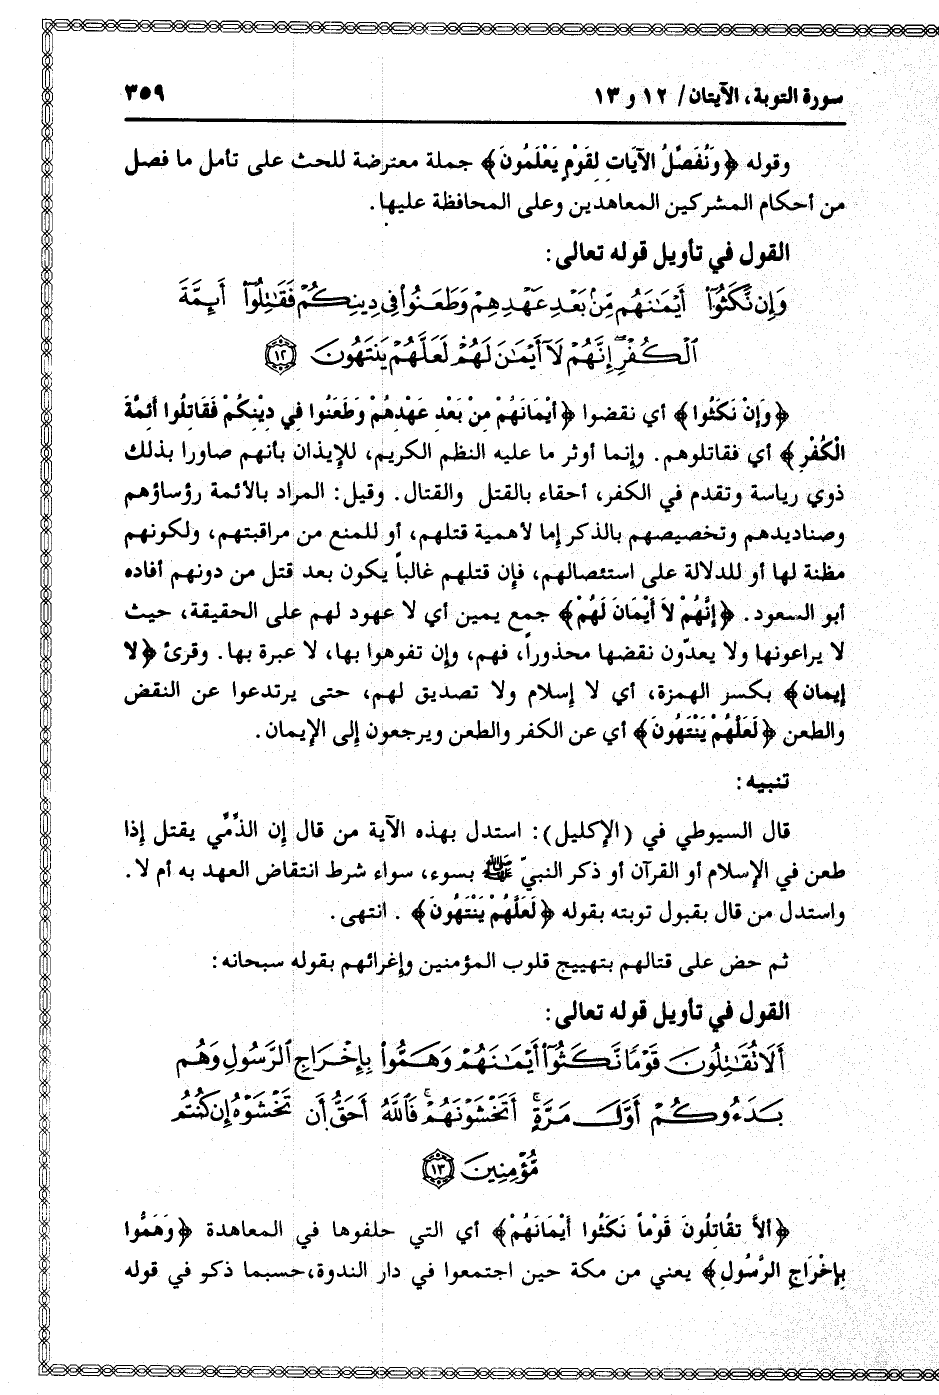 سورة التوبة، الآيتان/ ١٢ و ١٣ ٣٥٩
وقوله ﴿وَنُفَصِّلُ الآيَاتِ لِقَوْمٍ يَعْلَمُونَ﴾ جملة معترضة للحث على تأمل ما فصل
من أحكام المشركين المعاهدين وعلى المحافظة عليها.
القول في تأويل قوله تعالى:
وَإِن نَّكَثُوٓا۟ أَيْمَٰنَهُم مِّنۢ بَعْدِ عَهْدِهِمْ وَطَعَنُوا۟ فِى دِينِكُمْ فَقَٰتِلُوٓا۟ أَئِمَّةَ
ٱلْكُفْرِ ۙ إِنَّهُمْ لَآ أَيْمَٰنَ لَهُمْ لَعَلَّهُمْ يَنتَهُونَ ﴿١٢﴾
﴿وَإنْ نَكَثُوا﴾ أي نقضوا ﴿أَيْمَانَهُمْ مِنْ بَعْدِ عَهْدِهُمْ وَطَعَنُوا فِي دِيْنِكُمْ فَقَاتِلُوا أَئِمَّةَ
الْكُفْرِ﴾ أي فقاتلوهم. وإنما أوثر ما عليه النظم الكريم، للإيذان بأنهم صاورا بذلك
ذوي رياسة وتقدم في الكفر، أحقاء بالقتل والقتال. وقيل: المراد بالأئمة رؤساؤهم
وصناديدهم وتخصيصهم بالذكر إما لأهمية قتلهم، أو للمنع من مراقبتهم، ولكونهم
مظنة لها أو للدلالة على استئصالهم، فإن قتلهم غالباً يكون بعد قتل من دونهم أفاده
أبو السعود. ﴿إِنَّهُمْ لاَ أَيْمَانَ لَهُمْ﴾ جمع يمين أي لا عهود لهم على الحقيقة، حيث
لا يراعونها ولا يعدّون نقضها محذوراً، فهم، وإن تفوهوا بها، لا عبرة بها. وقرئ ﴿لا
إيمان﴾ بكسر الهمزة، أي لا إسلام ولا تصديق لهم، حتى يرتدعوا عن النقض
والطعن ﴿لَعَلَّهُمْ يَنْتَهُونَ﴾ أي عن الكفر والطعن ويرجعون إلى الإيمان.
تنبيه:
قال السيوطي في (الإكليل): استدل بهذه الآية من قال إن الذِّمِّي يقتل إذا
طعن في الإسلام أو القرآن أو ذكر النبيّ ﷺ بسوء، سواء شرط انتقاض العهد به أم لا.
واستدل من قال بقبول توبته بقوله ﴿لَعَلَّهُمْ يَنْتَهُونَ﴾ . انتهى.
ثم حض على قتالهم بتهييج قلوب المؤمنين وإغرائهم بقوله سبحانه:
القول في تأويل قوله تعالى:
أَلَا تُقَٰتِلُونَ قَوْمًا نَّكَثُوٓا۟ أَيْمَٰنَهُمْ وَهَمُّوا۟ بِإِخْرَاجِ ٱلرَّسُولِ وَهُم
بَدَءُوكُمْ أَوَّلَ مَرَّةٍ ۚ أَتَخْشَوْنَهُمْ ۚ فَٱللَّهُ أَحَقُّ أَن تَخْشَوْهُ إِن كُنتُم
مُّؤْمِنِينَ ﴿١٣﴾
﴿أَلاَّ تقُاتِلُونَ قَوْماً نَكَثُوا أَيْمَانَهُمْ﴾ أي التي حلفوها في المعاهدة ﴿وَهَمُّوا
بِإِخْرَاجِ الرَّسُولِ﴾ يعني من مكة حين اجتمعوا في دار الندوة،حسبما ذكو في قوله